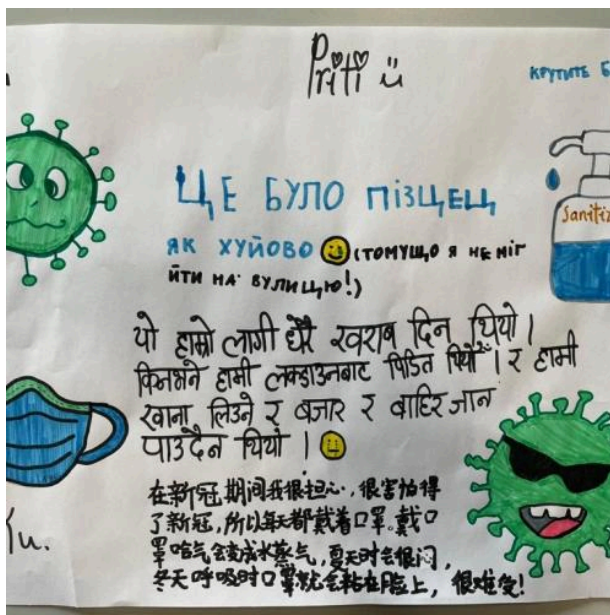 Priti ü
КРУТИТЕ Б
ЦЕ БУЛО ПІЗЦЕЦ
Sanitiz
ЯК ХУЙОВО (ТОМУЩО Я НЕ МІГ
ЙТИ НА ВУЛИЦЮ!)
यो हाम्रो लागी धेरै खराब दिन थियो ।
किनभने हामी लकडाउनबाट पिडित थियौँ । र हामी
खाना लिउने र बजार र बाहिर जान
पाउदैन थियो ।
在新冠期间我很担心，很害怕得
了新冠，所以每天都戴着口罩。戴口
罩哈气会变成水蒸气，夏天时会很闷，
冬天呼吸时口罩就会粘在脸上，很难受!